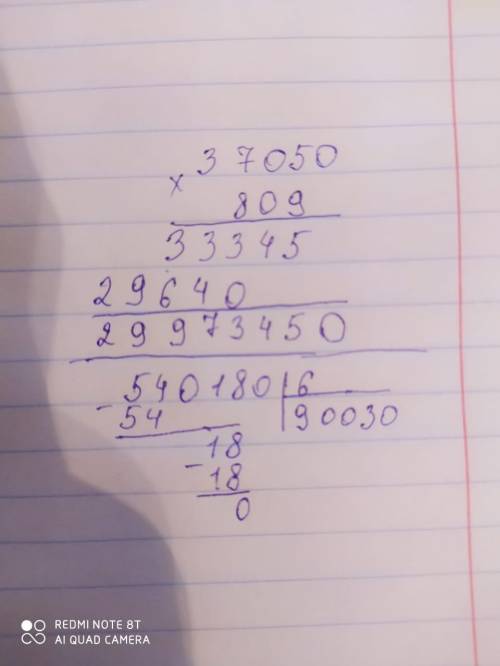 37050
x
809
33345
29640
29973450
540180 | 6
- 54 | 90030
18
- 18
0
REDMI NOTE 8T
AI QUAD CAMERA